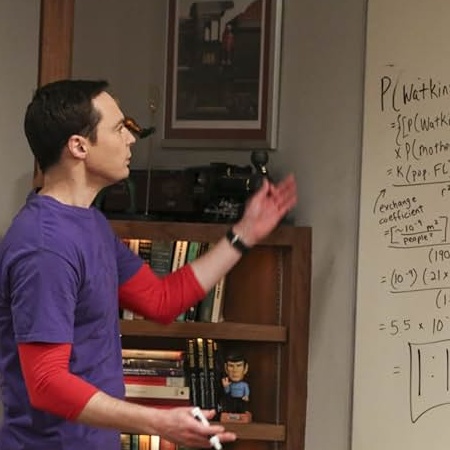 P(Watkin
={[P(Watki
x P(mothe
= K(pop. FL)
exchange
coefficient
=[~10⁻⁹ m²
people²]
(190
= (10⁻⁹)(21x
(1.
= 5.5 x 10⁻
= 1:1